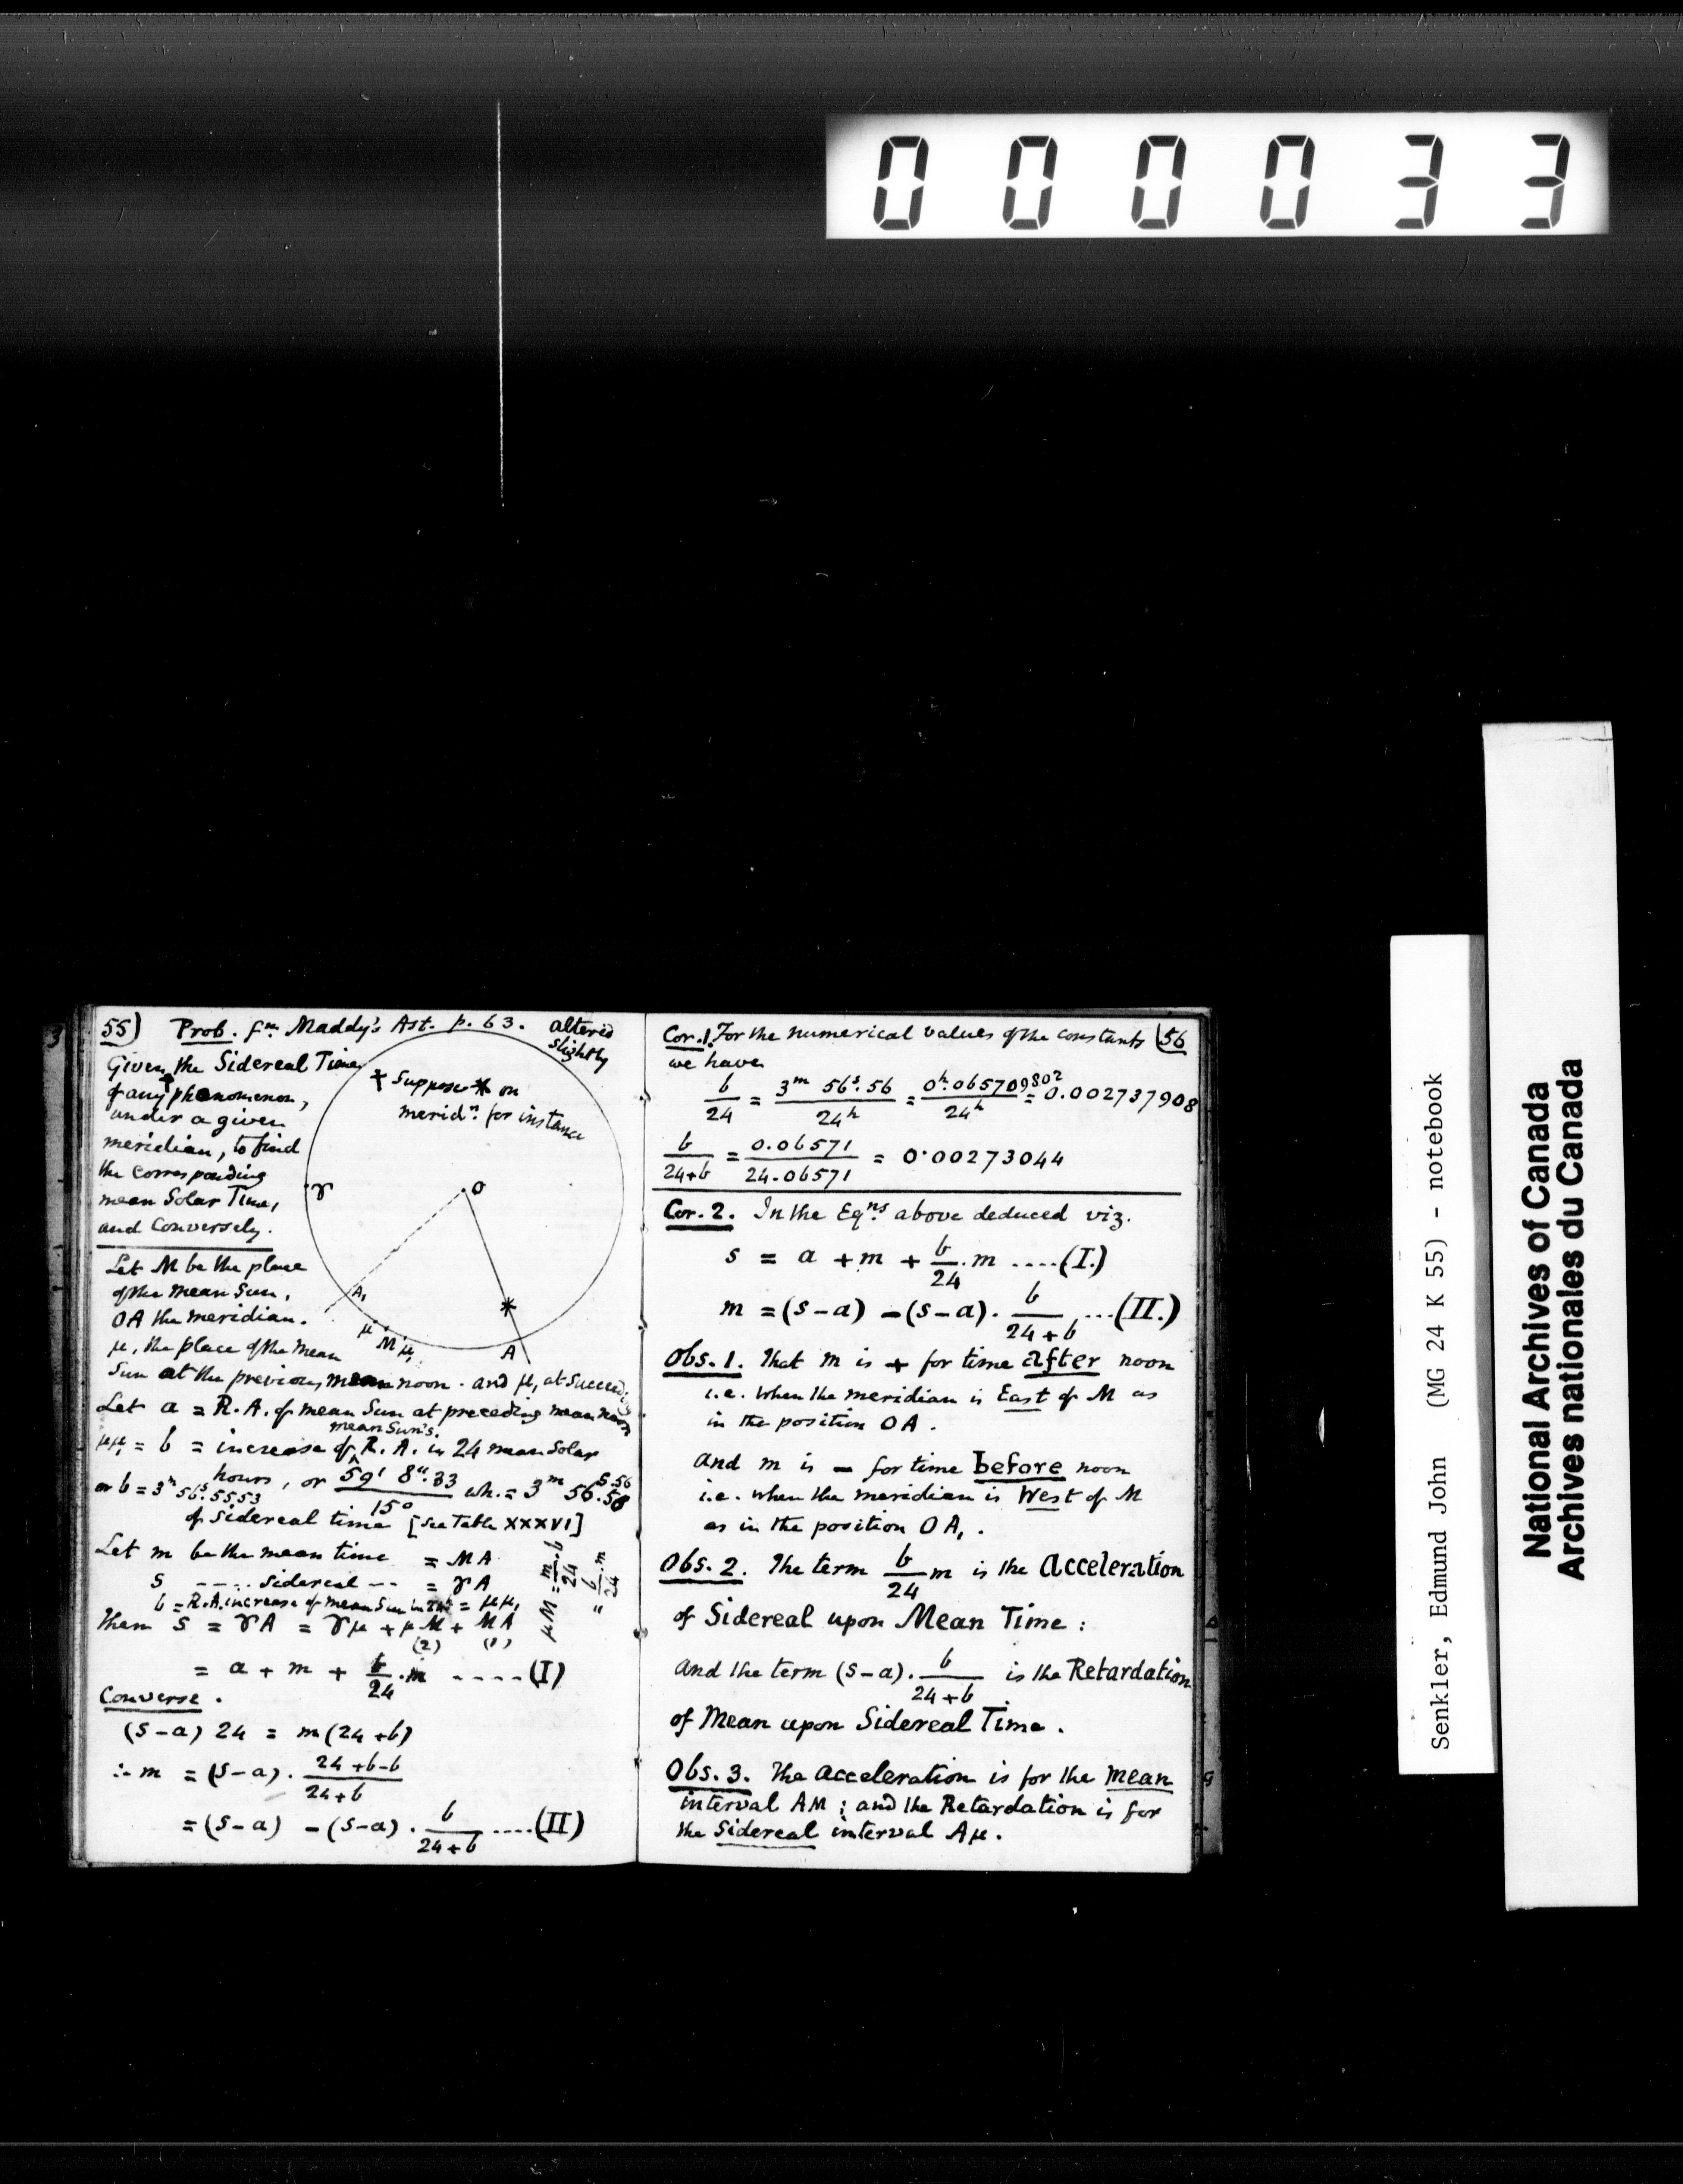 000033
55) Prob. fm. Maddy's Ast. p. 63. altered
slightly
Given the Sidereal Time
† of any phenomenon,
under a given
meridian, to find
the corresponding
mean Solar Time,
and Conversely.
† Suppose * on
meridn. for instance
♈
O
A₁
μ M μ₁
A
Let M be the place
of the mean Sun,
OA the meridian.
μ, the place of the mean
Sun at the previous mean noon. and μ₁ at succeedg
Let a = R.A. of mean Sun at preceding mean noon
mean Sun's.
μμ₁ = b = increase of ^ R.A. in 24 mean Solar
hours, or 59' 8".33 / 15° wh. = 3m 56s.56
or b = 3m 56s.5553
of sidereal time [See Table XXXVI]
Let m be the mean time = MA
s - - . . sidereal - - = ♈A
b = R.A. increase of mean Sun in 24h = μμ₁
μM = m/24 . b
= b/24 . m
then s = ♈A = ♈μ + μM + MA
(2) (1)
= a + m + b/24 . m - - - - (I)
Converse.
(s-a) 24 = m(24+b)
∴ m = (s-a) . 24+b-b / 24+b
= (s-a) - (s-a) . b / 24+b ....(II)
56
Cor. 1. For the numerical values of the constants
we have
b/24 = 3m 56s.56 / 24h = 0h.065709802 / 24h = 0.002737908
b / 24+b = 0.06571 / 24.06571 = 0.00273044
Cor. 2. In the Eqns. above deduced viz.
s = a + m + b/24 . m ....(I.)
m = (s-a) - (s-a) . b / 24+b ...(II.)
Obs. 1. That m is + for time after noon
i.e. when the meridian is East of M as
in the position OA.
And m is - for time before noon
i.e. when the meridian is West of M
as in the position OA₁.
Obs. 2. The term b/24 m is the Acceleration
of Sidereal upon Mean Time:
And the term (s-a) . b / 24+b is the Retardation
of Mean upon Sidereal Time.
Obs. 3. The Acceleration is for the Mean
interval AM; and the Retardation is for
the Sidereal interval Aμ.
Senkler, Edmund John (MG 24 K 55) - notebook
National Archives of Canada
Archives nationales du Canada